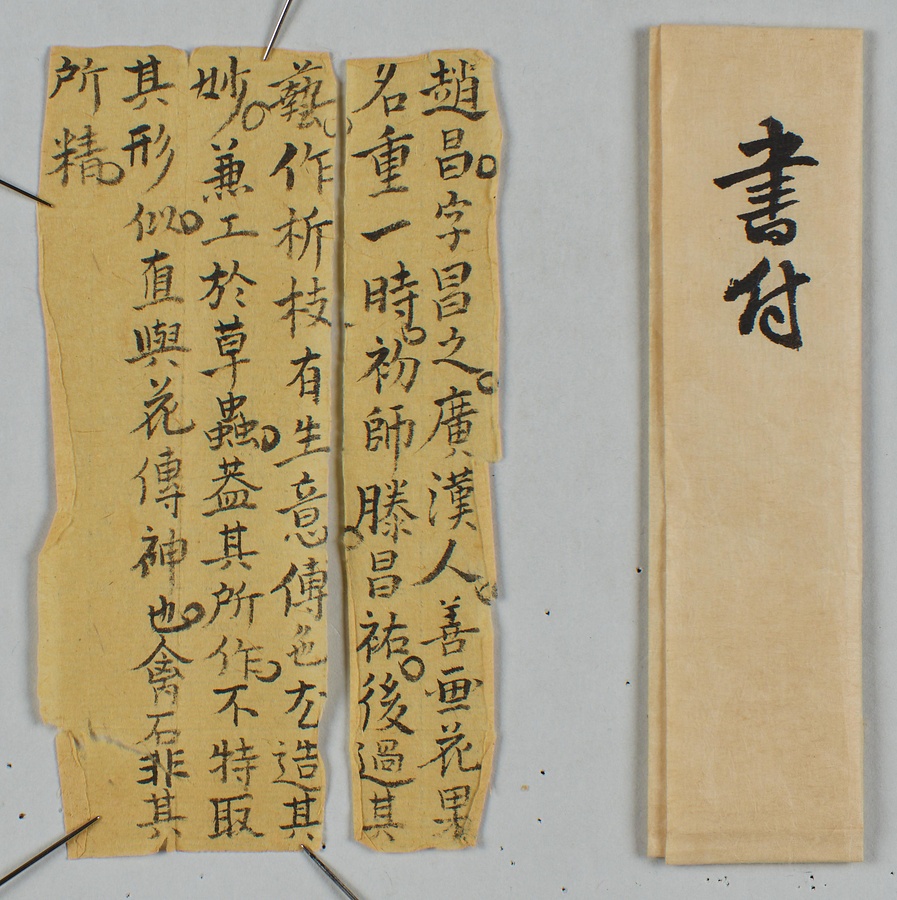 書付
趙昌字昌之廣漢人善画花果
名重一時初師滕昌祐後過其
藝作折枝有生意傅色尤造其
妙兼工於草蟲蓋其所作不特取
其形似直與花傳神也禽石非其
所精